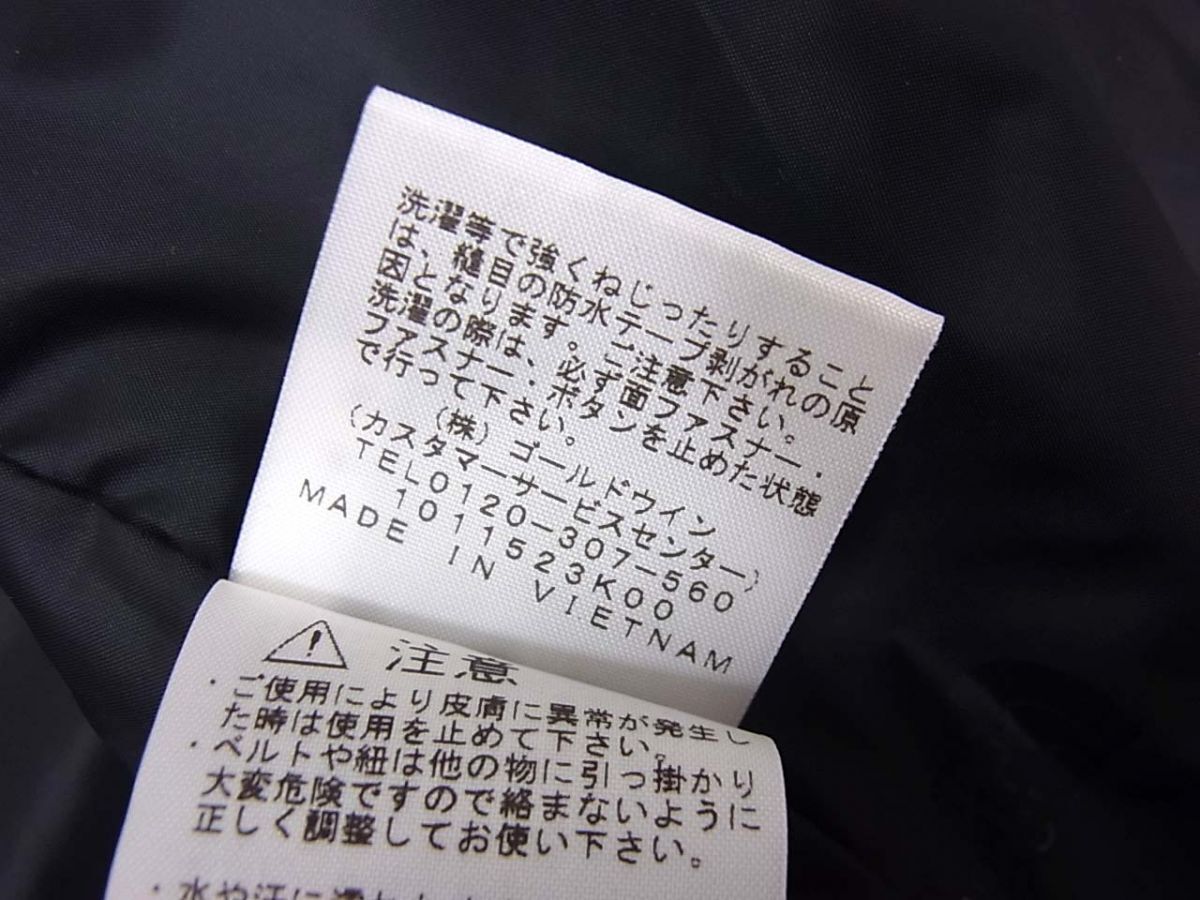 洗濯等で強くねじったりすること
は、縫目の防水テープ剥がれの原
因となります。ご注意下さい。
洗濯の際は、必ず面ファスナー・
ファスナー・ボタンを止めた状態
で行って下さい。
(株)ゴールドウイン
(カスタマーサービスセンター)
TEL0120-307-560
1011523K00
MADE IN VIETNAM
注意
・ご使用により皮膚に異常が発生し
た時は使用を止めて下さい。
・ベルトや紐は他の物に引っ掛かり
大変危険ですので絡まないように
正しく調整してお使い下さい。
・水や汗に濡れ